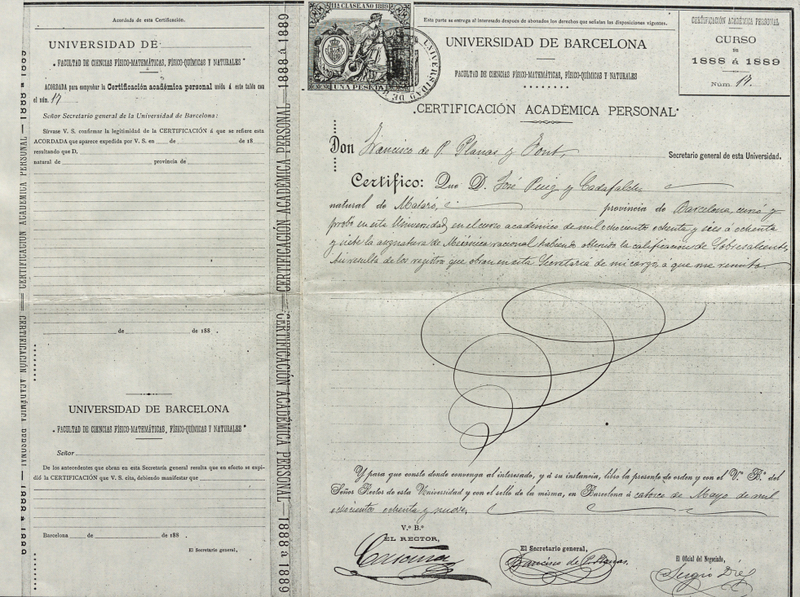 Acordada de esta Certificación.
UNIVERSIDAD DE
FACULTAD DE CIENCIAS FÍSICO-MATEMÁTICAS, FÍSICO-QUÍMICAS Y NATURALES
ACORDADA para comprobar la Certificación académica personal unida á este talón con
el núm. 17
Señor Secretario general de la Universidad de Barcelona:
Sírvase V. S. confirmar la legitimidad de la CERTIFICACIÓN á que se refiere esta
ACORDADA que aparece expedida por V. S. en de de 18
resultando que D.
natural de provincia de
de de 188 .
UNIVERSIDAD DE BARCELONA
FACULTAD DE CIENCIAS FÍSICO-MATEMÁTICAS, FÍSICO-QUÍMICAS Y NATURALES
Señor
De los antecedentes que obran en esta Secretaría general resulta que en efecto se expi-
dió la CERTIFICACIÓN que V. S. cita, debiendo manifestar que
Barcelona de de 188 .
El Secretario general,
1888 á 1889 — CERTIFICACIÓN ACADÉMICA PERSONAL — CERTIFICACIÓN ACADÉMICA PERSONAL — 1888 á 1889
1888 á 1889 — CERTIFICACIÓN ACADÉMICA PERSONAL — CERTIFICACIÓN ACADÉMICA PERSONAL — 1888 á 1889
CLASE AÑO 1889
UNA PESETA
UNIVERSIDAD DE
Esta parte se entrega al interesado después de abonados los derechos que señalan las disposiciones vigentes.
UNIVERSIDAD DE BARCELONA
FACULTAD DE CIENCIAS FÍSICO-MATEMÁTICAS, FÍSICO-QUÍMICAS Y NATURALES
CERTIFICACIÓN ACADÉMICA PERSONAL
CURSO
DE
1888 á 1889
Núm. 17.
CERTIFICACIÓN ACADÉMICA PERSONAL
Don Francisco de P. Planas y Font, Secretario general de esta Universidad.
Certifico: Que D. José Puig y Cadafalch
natural de Mataró, provincia de Barcelona, cursó y
probó en esta Universidad en el curso académico de mil ochocientos ochenta y seis á ochenta
y siete la asignatura de Mecánica racional habiendo obtenido la calificación de Sobresaliente,
Así resulta de los registros que obran en esta Secretaría de mi cargo, á que me remito.
Y para que conste donde convenga al interesado, y á su instancia, libro la presente de orden y con el V.º B.º del
Señor Rector de esta Universidad y con el sello de la misma, en Barcelona á catorce de Mayo de mil
ochocientos ochenta y nueve.
V.º B.º
EL RECTOR,
El Secretario general,
Francisco de P. Planas.
El Oficial del Negociado,
Sergio